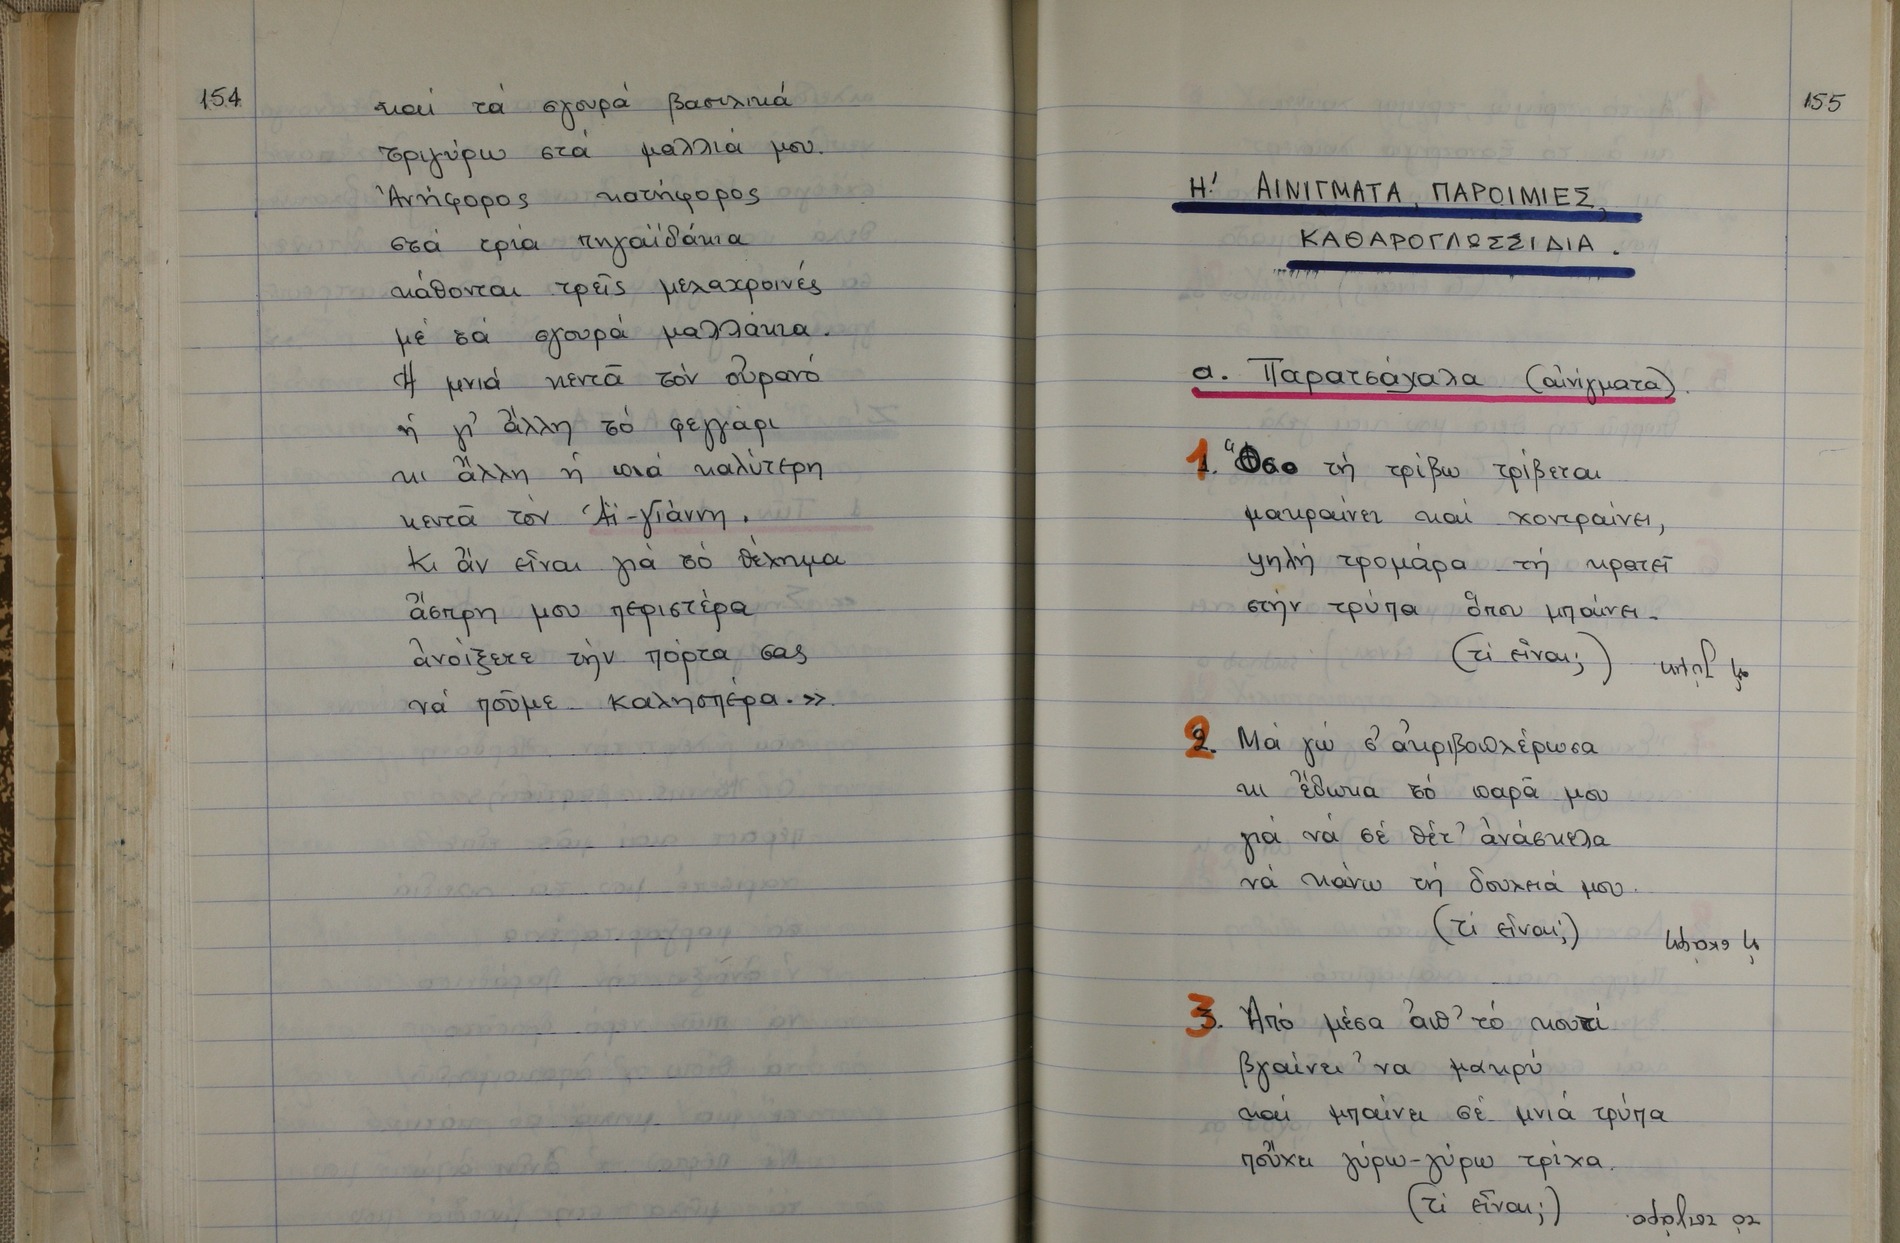 154
καί τά σγουρά βασιλικά
τριγύρω στά μαλλιά μου.
Ἀνήφορος κατήφορος
στά τρία πηγαϊδάκια
κάθονται τρεῖς μελαχροινές
μέ τά σγουρά μαλλάκια.
Ἡ μνιά κεντᾶ τόν οὐρανό
ἡ γι' ἄλλη τό φεγγάρι
κι ἄλλη ἡ πιά καλύτερη
κεντᾶ τόν Ἀϊ-Γιάννη.
Κι ἄν εἶναι γιά τό θέλημα
ἄσπρη μου περιστέρα
ἀνοίξετε τήν πόρτα σας
νά ποῦμε καλησπέρα.»
155
Η! ΑΙΝΙΓΜΑΤΑ, ΠΑΡΟΙΜΙΕΣ,
ΚΑΘΑΡΟΓΛΩΣΣΙΔΙΑ.
α. Παρατσάχαλα (αἰνίγματα).
1. Ὅσο τή τρίβω τρίβεται
μακραίνει καί χοντραίνει,
ψηλή τρομάρα τή κρατεῖ
στήν τρύπα ὅπου μπαίνει.
(τί εἶναι;)
2. Μά γώ σ' ἀκριβοπλέρωσα
κι ἔδωκα τό παρᾶ μου
γιά νά σέ θέτ' ἀνάσκελα
νά κάνω τή δουλειά μου.
(τί εἶναι;) ἡ σκάφη
3. Ἀπό μέσα ἀπ' τό κουτί
βγαίνει 'να μακρύ
καί μπαίνει σέ μνιά τρύπα
ποὔχει γύρω-γύρω τρίχα.
(τί εἶναι;) τό τσιγάρο.